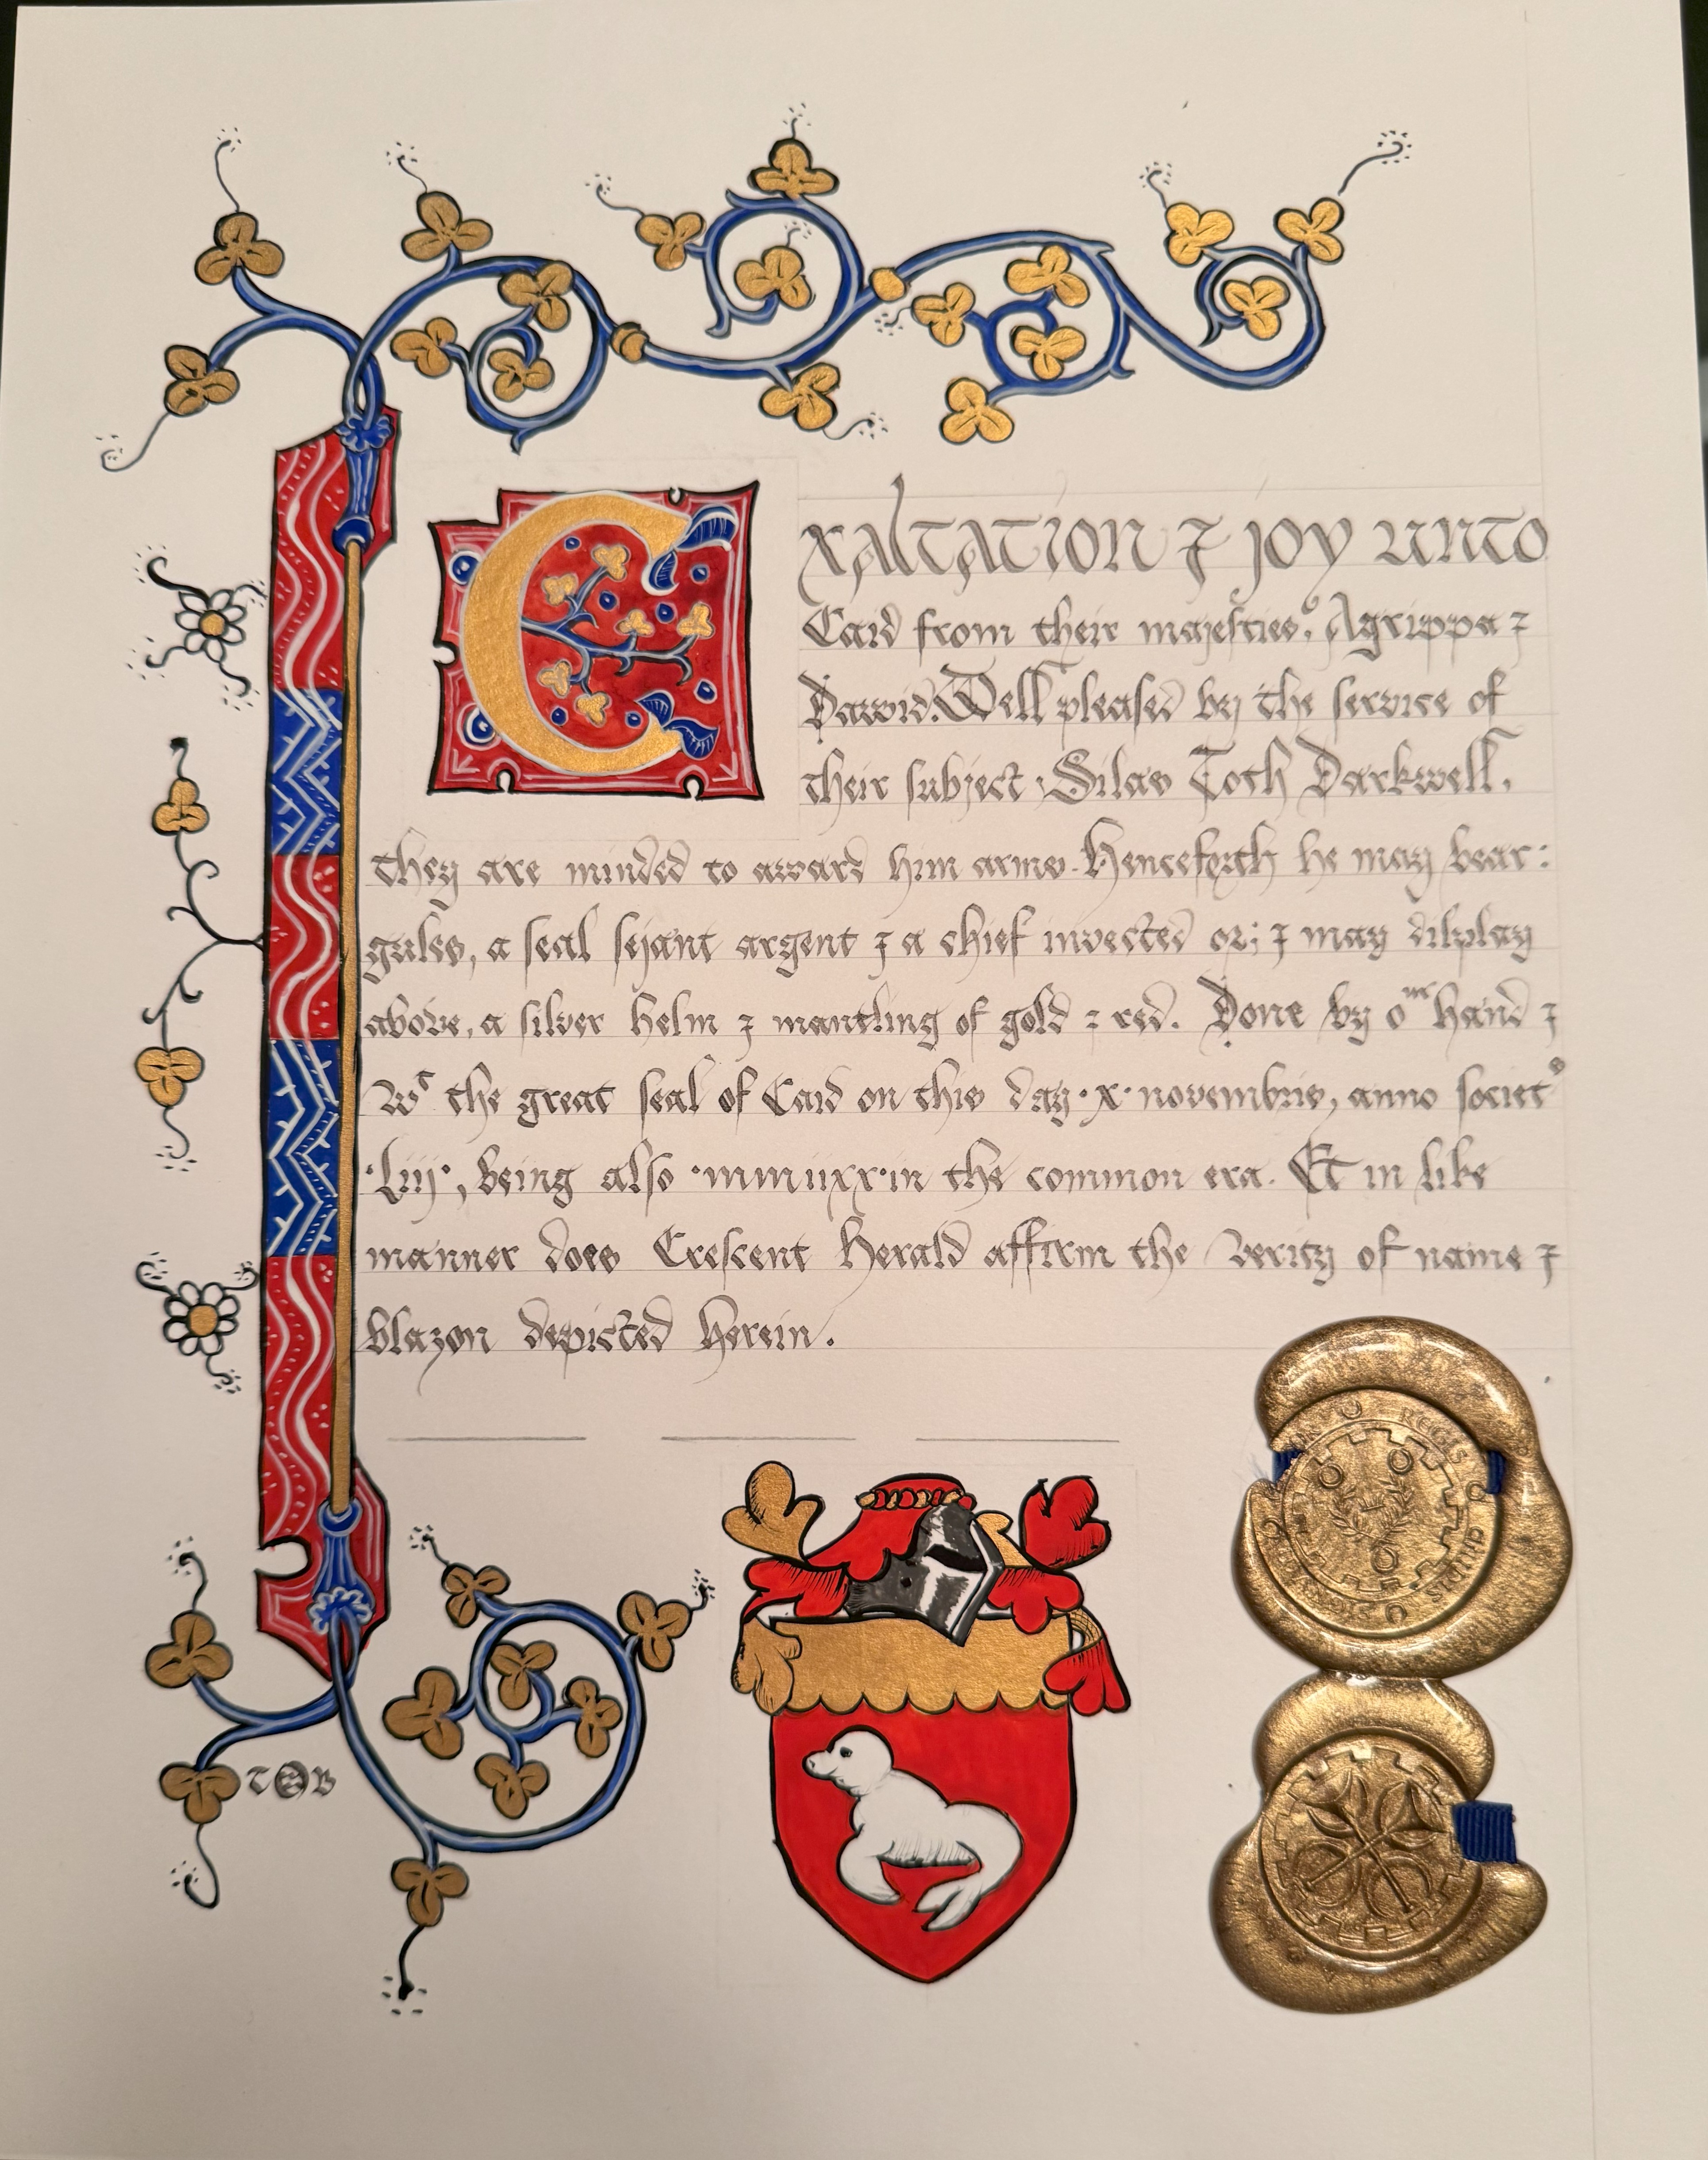 Exaltation & joy unto
Caid from their majesties, Agrippa &
Dawid. Well pleased by the service of
their subject, Silas Toth Darkwell,
they are minded to award him arms. Henceforth he may bear:
gules, a seal sejant argent & a chief invected or; & may display
above, a silver helm & mantling of gold & red. Done by oʳ hand &
wᵗ the great seal of Caid on this day ·x· novembris, anno societ⁹
·Liij·, being also ·mmiixx· in the common era. Et in like
manner does Crescent Herald affirm the verity of name &
blazon depicted herein.
REGIS